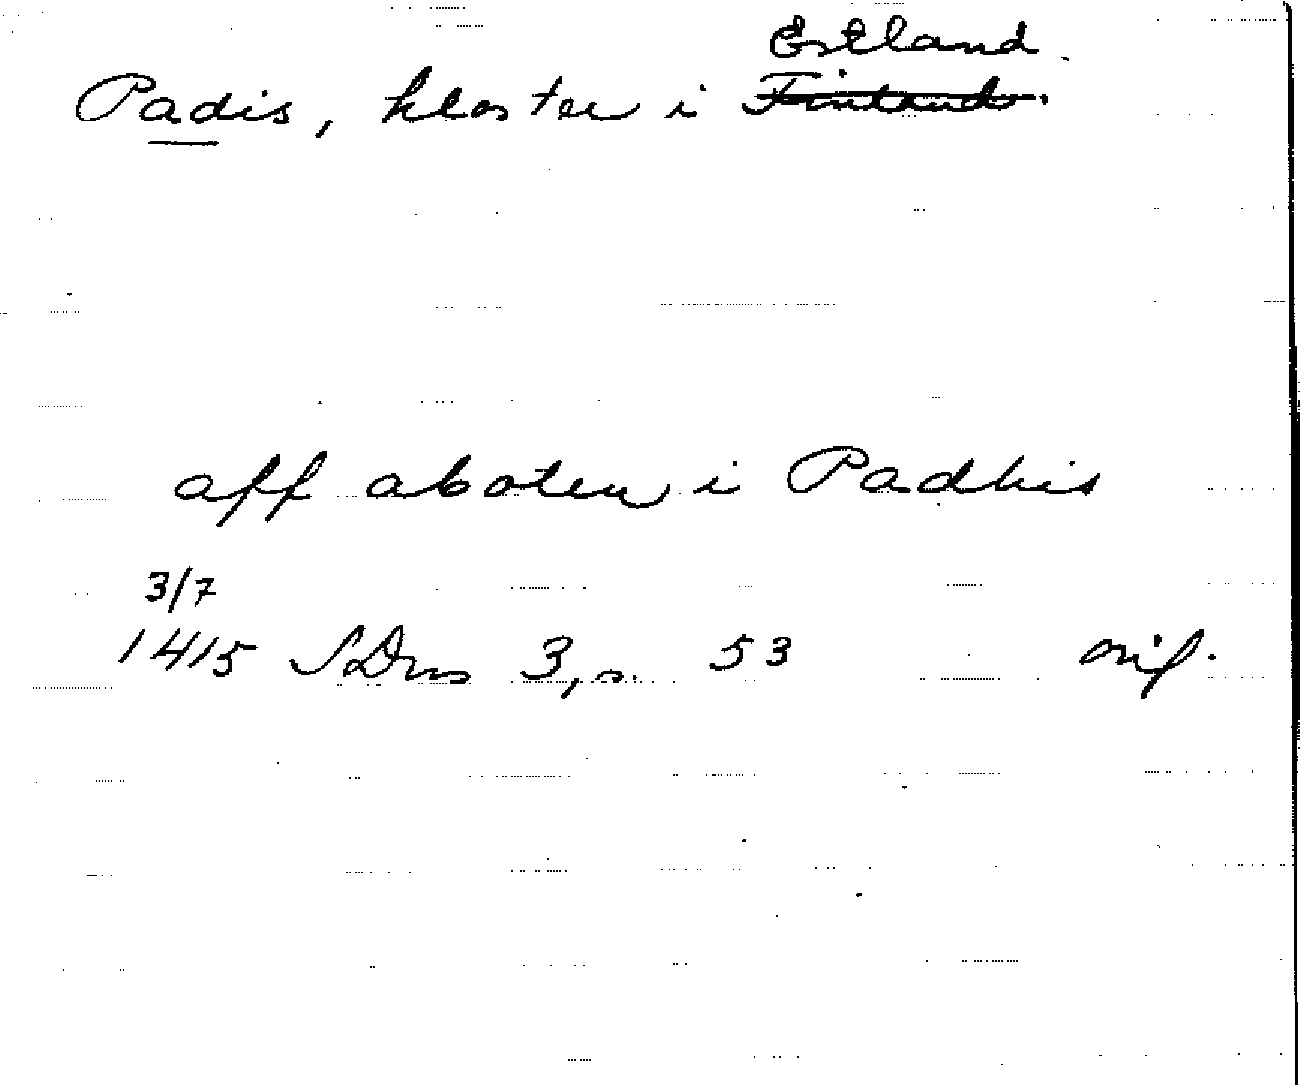 Estland
Padis, kloster i Finland.
aff aboten i Padhis
3/7
1415 SDns 3, s. 53 orig.